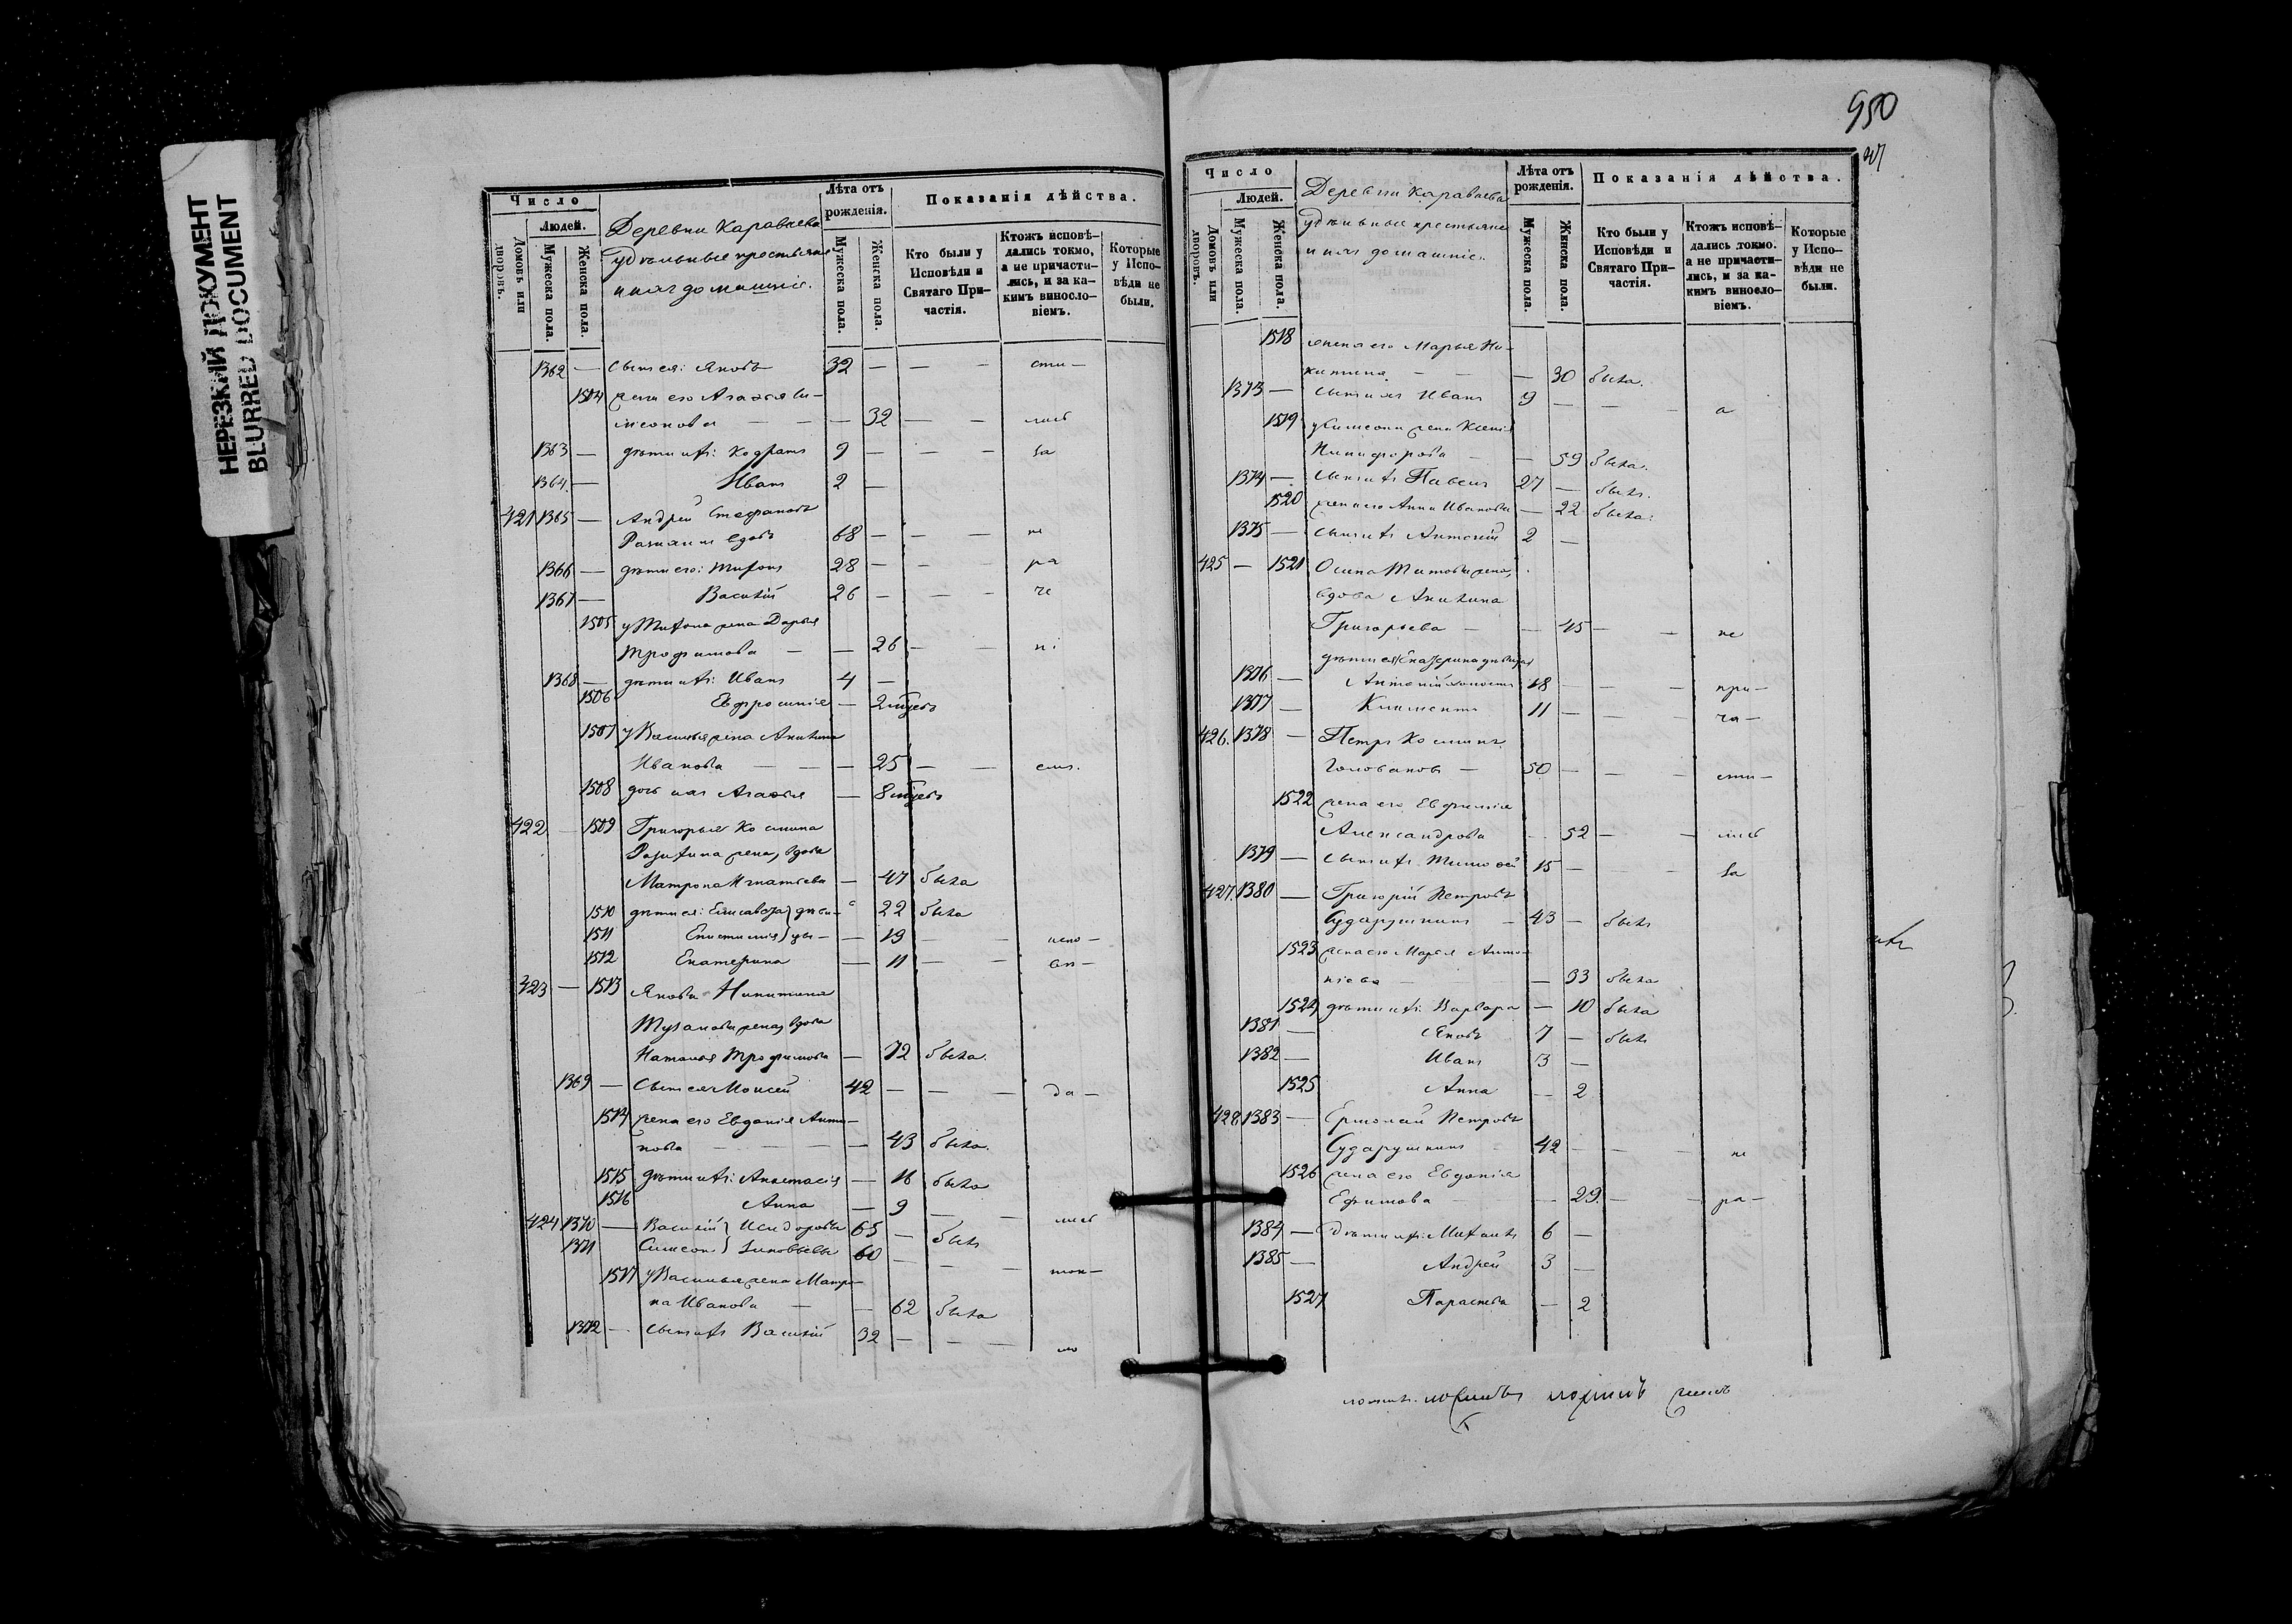 НЕРЕЗКИЙ ДОКУМЕНТ
BLURRED DOCUMENT
Число
Людей.
Домовъ или дворовъ.
Мужеска пола.
Женска пола.
Деревни Караваева
удѣльные крестьяне
и ихъ домашніе.
Лѣта отъ рожденія.
Мужеска пола.
Женска пола.
Показанія дѣйства.
Кто были у Исповѣди и Святаго Причастія.
Ктожъ исповѣдались токмо, а не причастились, и за какимъ винословіемъ.
Которые у Исповѣди не были.
1362 — сынъ ея: Яковъ 32 — — — сти—
1504 жена его Агаѳья Си—
меонова — — — 32 — — лись
1363 — дѣти ихъ: Кодратъ 9 — — — за
1364. — Иванъ 2 —
421 1365 — Андрей Стефановъ
вдовъ 68 — — — не
1366 — дѣти его: 28 — — — ра
1367 — Василій 26 — — — че
1505 у жена Дарья
Трофимова — — 26 — — ні
1368 — дѣти ихъ: Иванъ 4 —
1506 Евфросинія — 2 мѣсец
1507 у Василья жена Акилина
Иванова — — — 25 — — емъ.
1508 дочь ихъ Агаѳья — 8 мѣсец
422 — 1509 Григорья Космина
жена, вдова
Матрона Игнатьева — 47 была
1510 дѣти ея: Елисавета} дѣви— 22 была
1511 Епистимія} цы — — 19 — — испо—
1512 Екатерина — 11 — — вѣ—
423 — 1513 Якова Никитина
жена, вдова
Наталья Трофимова — 72 была.
1369 — сынъ ея Моисей 42 — — — да—
1514 жена его Евдокія Анти—
пова — — — — 43 была.
1515 дѣти ихъ: Анастасія — 16 была
1516 Анна — 9 — — лись
424 1370 — Василій} Исидоровы 65 — былъ
1371 Симеонъ} Зиновьевы 60 — — — ток—
1517 у Василья жена Матро—
на Иванова — — 62 была
1372 — сынъ ихъ Василій 32 — — — мо
950
Число
Людей.
Домовъ или дворовъ.
Мужеска пола.
Женска пола.
Деревни Караваева
удѣльные крестьяне
и ихъ домашніе.
Лѣта отъ рожденія.
Мужеска пола.
Женска пола.
Показанія дѣйства.
Кто были у Исповѣди и Святаго Причастія.
Ктожъ исповѣдались токмо. а не причастились, и за какимъ винословіемъ.
Которые у Исповѣди не были.
1518 жена его Марья Ни—
китина — — — 30 была.
1373 — сынъ ихъ Иванъ 9 — — — а
1519 у Симеона жена Ксенія
Никифорова — — 59 была.
1374 — сынъ ихъ Павелъ 27 — былъ.
1520 жена его Анна Иванова — 22 была.
1375 — сынъ ихъ Антоній 2 —
425 — 1521 Осипа Титова жена,
вдова Акилина
Григорьева — — 45 — — не
дѣти ея: Екатерина дѣвица
1376 — Антоній холостъ 18 — — — при—
1377 — Климентъ 11 — — — ча—
426. 1378 — Петръ Косминъ
Головановъ — 50 — — — сти—
1522 жена его Евфимія
Александрова — 52 — — лись
1379 — сынъ ихъ Тимоѳей 15 — — — за
427. 1380 — Григорій Петровъ
Сударушкинъ — 43 — былъ
1523 жена его Марья Анто—
ніева — — — 33 была
1524 дѣти ихъ: Варвара — 10 была
1381 — Яковъ 7 — былъ
1382 — Иванъ 3 —
1525 Анна — 2
428 1383 — Ермолай Петровъ
Сударушкинъ — 42 — — — не
1526 жена его Евдокія
Ефимова — 29. — — ра—
1384 — дѣти ихъ: Михаилъ 6 —
1385 — Андрей 3 —
1527 Параскева — 2